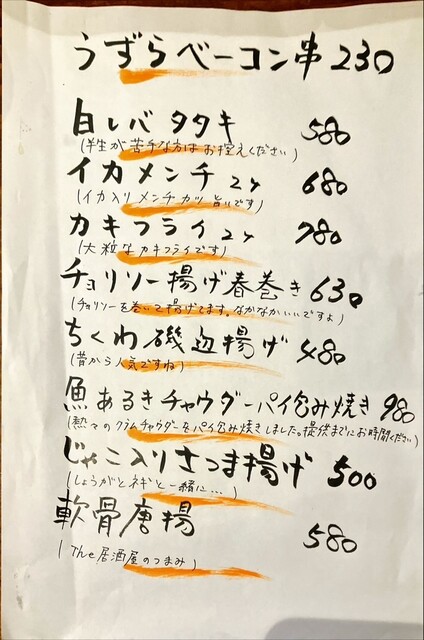 うずらベーコン串 230
白レバタタキ 580
(半生が苦手な方はお控えください)
イカメンチ 2ヶ 680
(イカ入りメンチカツ 旨いです)
カキフライ 2ヶ 780
(大粒なカキフライです)
チョリソー揚げ春巻き 630
(チョリソーを巻いて揚げてます。なかなかいいですよ)
ちくわ磯辺揚げ 480
(昔から人気ですね)
魚あるきチャウダーパイ包み焼き 980
(熱々のクラムチャウダーをパイ包み焼きしました。提供までにお時間ください)
じゃこ入りさつま揚げ 500
(しょうがとネギと一緒に…)
軟骨唐揚 580
(The居酒屋のつまみ)